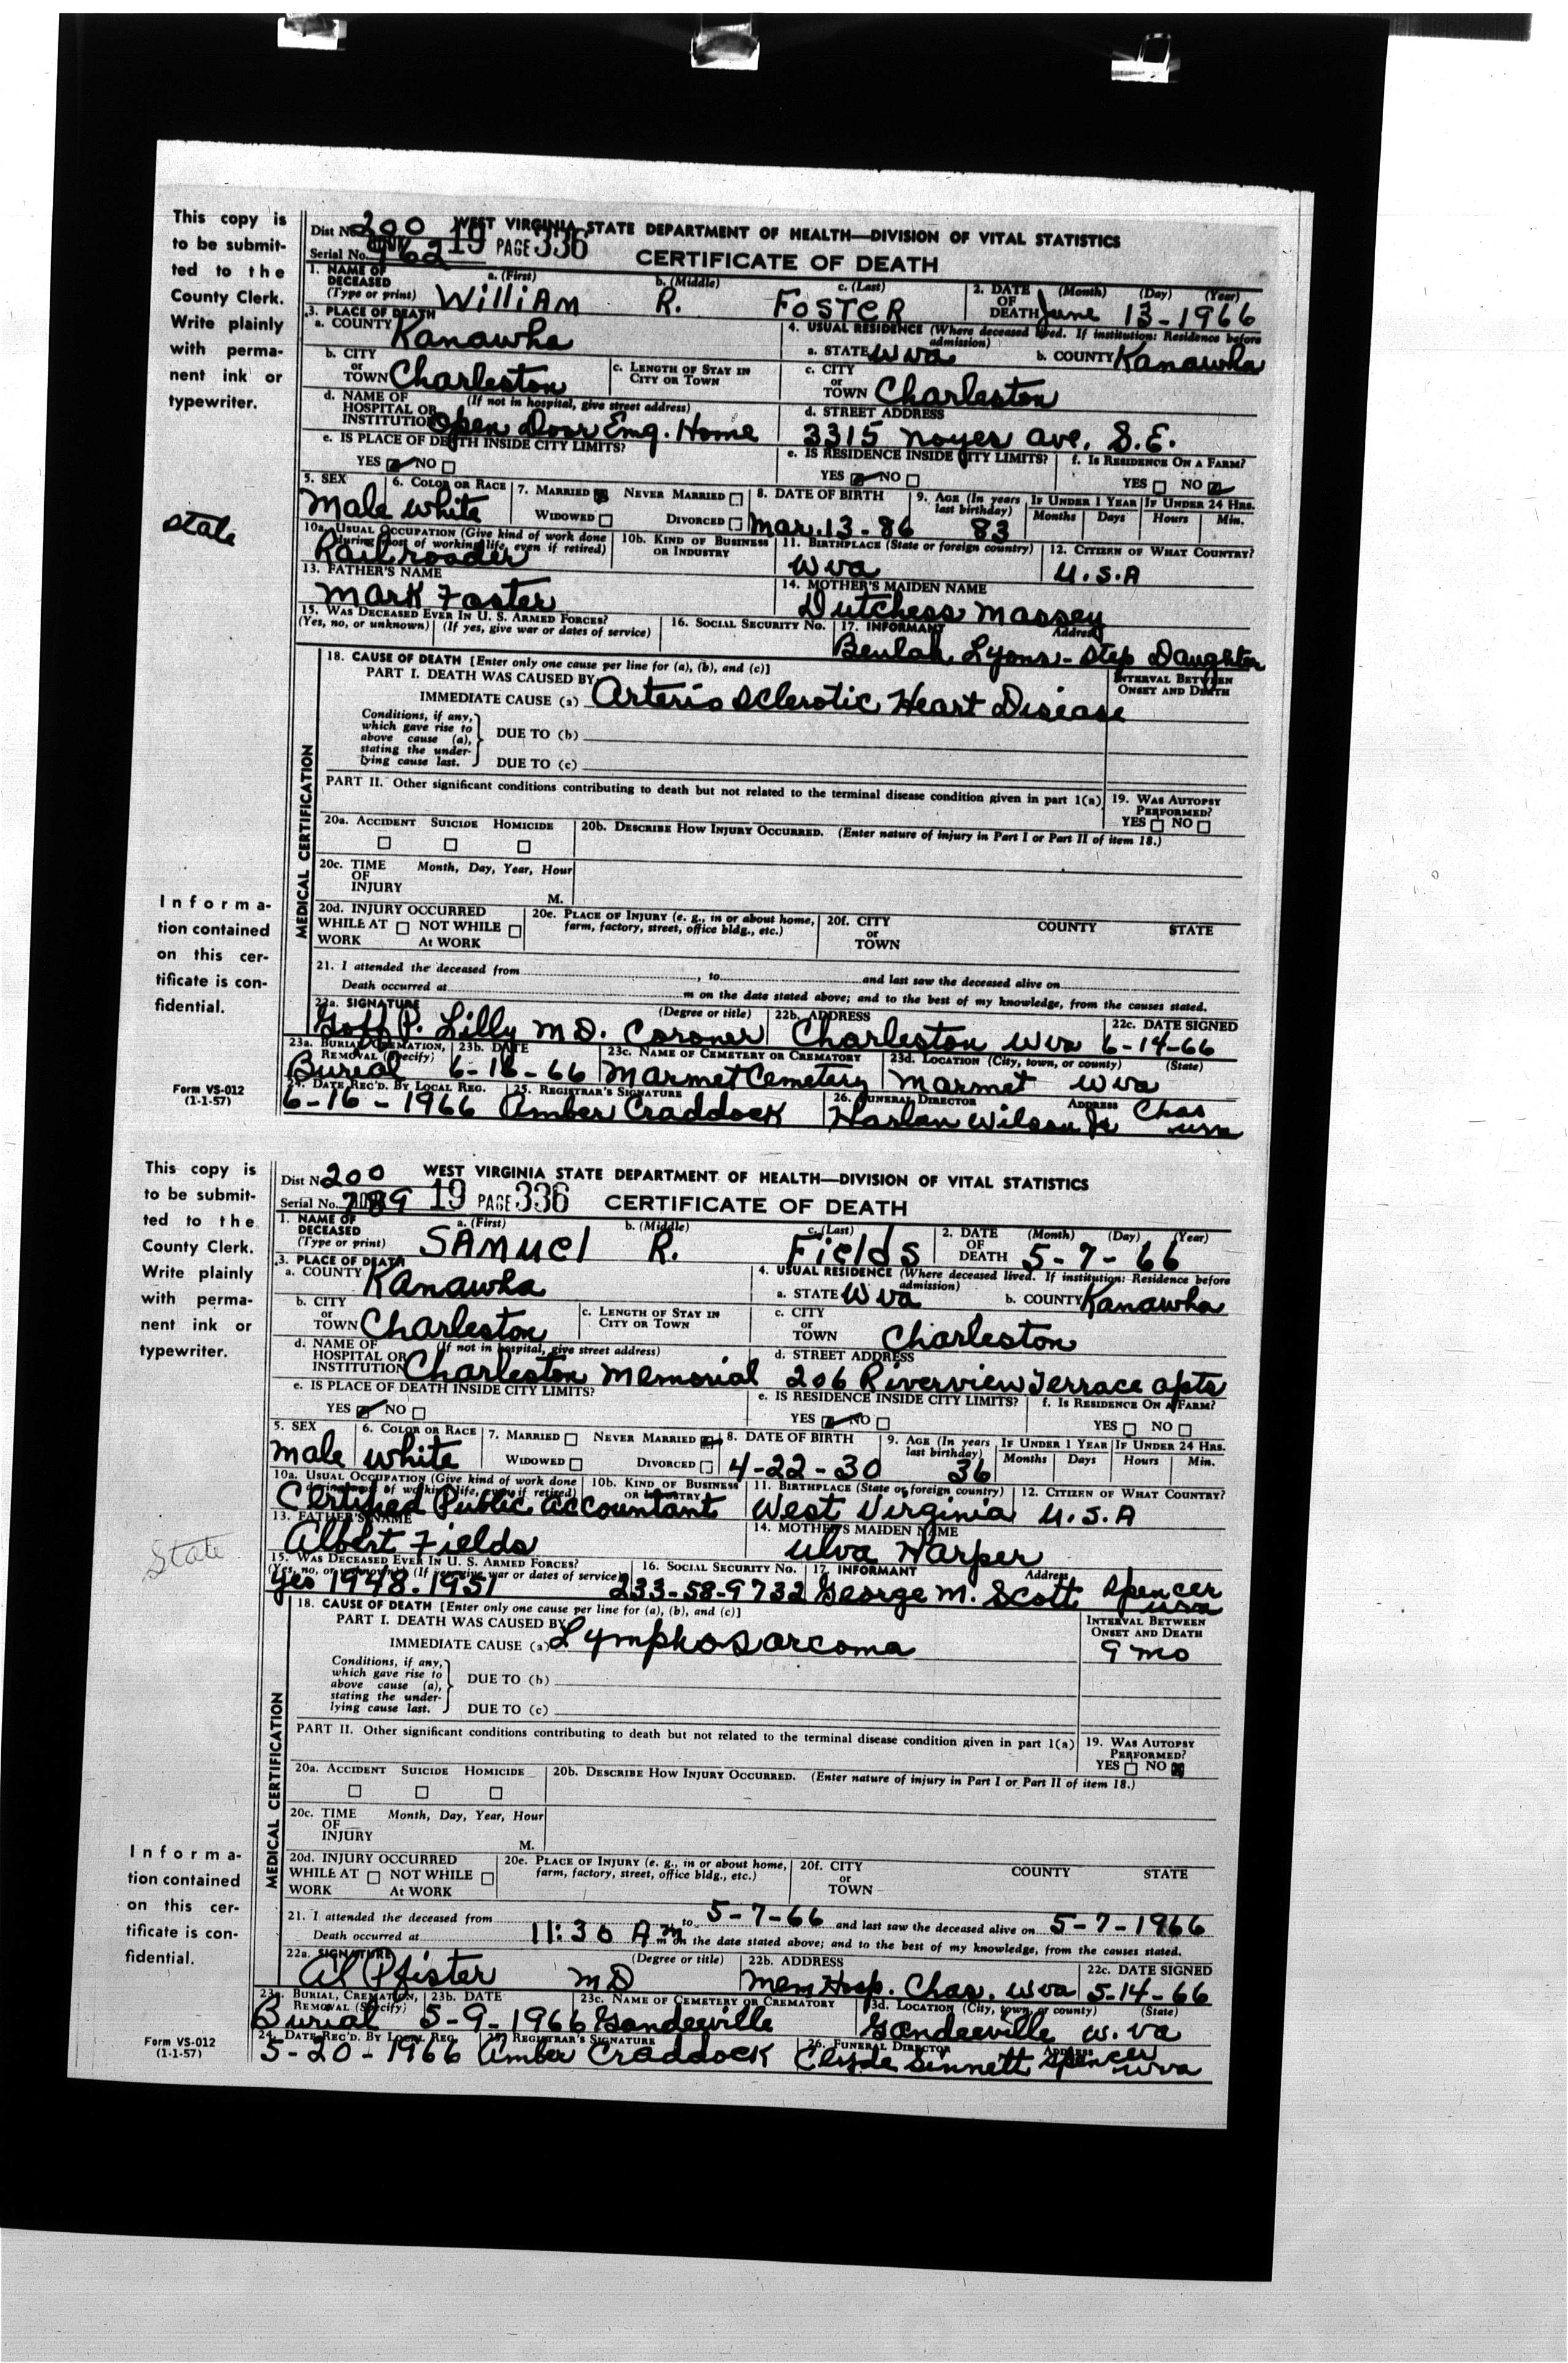 This copy is
to be submit-
ted to the
County Clerk.
Write plainly
with perma-
nent ink or
typewriter.
state
Informa-
tion contained
on this cer-
tificate is con-
fidential.
Form VS-012
(1-1-57)
Dist No. 200 WEST VIRGINIA STATE DEPARTMENT OF HEALTH—DIVISION OF VITAL STATISTICS
Serial No. 762 19 PAGE 336 CERTIFICATE OF DEATH
1. NAME OF DECEASED (Type or print) a. (First) William b. (Middle) R. c. (Last) Foster 2. DATE OF DEATH (Month) (Day) (Year) June 13-1966
3. PLACE OF DEATH 4. USUAL RESIDENCE (Where deceased lived. If institution: Residence before admission)
a. COUNTY Kanawha a. STATE Wva b. COUNTY Kanawha
b. CITY or TOWN Charleston c. LENGTH OF STAY IN CITY OR TOWN c. CITY or TOWN Charleston
d. NAME OF HOSPITAL OR INSTITUTION (If not in hospital, give street address) Open Door Emg. Home d. STREET ADDRESS 3315 Noyes ave. S.E.
e. IS PLACE OF DEATH INSIDE CITY LIMITS? YES NO e. IS RESIDENCE INSIDE CITY LIMITS? YES NO f. IS RESIDENCE ON A FARM? YES NO
5. SEX Male 6. COLOR OR RACE white 7. MARRIED NEVER MARRIED WIDOWED DIVORCED 8. DATE OF BIRTH Mar. 13-86 9. AGE (In years last birthday) 83 IF UNDER 1 YEAR Months Days IF UNDER 24 HRS. Hours Min.
10a. USUAL OCCUPATION (Give kind of work done during most of working life, even if retired) Railroader 10b. KIND OF BUSINESS OR INDUSTRY 11. BIRTHPLACE (State or foreign country) Wva 12. CITIZEN OF WHAT COUNTRY? U.S.A
13. FATHER'S NAME Mark Foster 14. MOTHER'S MAIDEN NAME Dutchess Massey
15. WAS DECEASED EVER IN U. S. ARMED FORCES? (Yes, no, or unknown) (If yes, give war or dates of service) 16. SOCIAL SECURITY NO. 17. INFORMANT Address Beulah Lyons - Step Daughter
18. CAUSE OF DEATH [Enter only one cause per line for (a), (b), and (c)]
PART I. DEATH WAS CAUSED BY: INTERVAL BETWEEN ONSET AND DEATH
IMMEDIATE CAUSE (a) Arterio sclerotic Heart Disease
Conditions, if any, which gave rise to above cause (a), stating the underlying cause last. DUE TO (b)
DUE TO (c)
PART II. Other significant conditions contributing to death but not related to the terminal disease condition given in part 1(a) 19. WAS AUTOPSY PERFORMED? YES NO
20a. ACCIDENT SUICIDE HOMICIDE 20b. DESCRIBE HOW INJURY OCCURRED. (Enter nature of injury in Part I or Part II of item 18.)
20c. TIME OF INJURY Month, Day, Year, Hour M.
MEDICAL CERTIFICATION
20d. INJURY OCCURRED WHILE AT WORK NOT WHILE AT WORK 20e. PLACE OF INJURY (e. g., in or about home, farm, factory, street, office bldg., etc.) 20f. CITY or TOWN COUNTY STATE
21. I attended the deceased from , to and last saw the deceased alive on
Death occurred at m on the date stated above; and to the best of my knowledge, from the causes stated.
22a. SIGNATURE (Degree or title) Goff P. Lilly MD. Coroner 22b. ADDRESS Charleston Wva 22c. DATE SIGNED 6-14-66
23a. BURIAL, CREMATION, REMOVAL (Specify) Burial 23b. DATE 6-16-66 23c. NAME OF CEMETERY OR CREMATORY Marmet Cemetery 23d. LOCATION (City, town, or county) (State) Marmet Wva
24. DATE REC'D. BY LOCAL REG. 6-16-1966 25. REGISTRAR'S SIGNATURE Amber Craddock 26. FUNERAL DIRECTOR ADDRESS Harlan Wilson Jr Chas wva
This copy is
to be submit-
ted to the
County Clerk.
Write plainly
with perma-
nent ink or
typewriter.
State
Informa-
tion contained
on this cer-
tificate is con-
fidential.
Form VS-012
(1-1-57)
Dist No. 200 WEST VIRGINIA STATE DEPARTMENT OF HEALTH—DIVISION OF VITAL STATISTICS
Serial No. 19 PAGE 336 CERTIFICATE OF DEATH
1. NAME OF DECEASED (Type or print) a. (First) Samuel b. (Middle) R. c. (Last) Fields 2. DATE OF DEATH (Month) (Day) (Year) 5-7-66
3. PLACE OF DEATH 4. USUAL RESIDENCE (Where deceased lived. If institution: Residence before admission)
a. COUNTY Kanawha a. STATE Wva b. COUNTY Kanawha
b. CITY or TOWN Charleston c. LENGTH OF STAY IN CITY OR TOWN c. CITY or TOWN Charleston
d. NAME OF HOSPITAL OR INSTITUTION (If not in hospital, give street address) Charleston Memorial d. STREET ADDRESS 206 Riverview Terrace apts
e. IS PLACE OF DEATH INSIDE CITY LIMITS? YES NO e. IS RESIDENCE INSIDE CITY LIMITS? YES NO f. IS RESIDENCE ON A FARM? YES NO
5. SEX Male 6. COLOR OR RACE white 7. MARRIED NEVER MARRIED WIDOWED DIVORCED 8. DATE OF BIRTH 4-22-30 9. AGE (In years last birthday) 36 IF UNDER 1 YEAR Months Days IF UNDER 24 HRS. Hours Min.
10a. USUAL OCCUPATION (Give kind of work done during most of working life, even if retired) Certified Public accountant 10b. KIND OF BUSINESS OR INDUSTRY 11. BIRTHPLACE (State or foreign country) West Virginia 12. CITIZEN OF WHAT COUNTRY? U.S.A
13. FATHER'S NAME Albert Fields 14. MOTHER'S MAIDEN NAME Ulva Harper
15. WAS DECEASED EVER IN U. S. ARMED FORCES? (Yes, no, or unknown) (If yes, give war or dates of service) yes 1948-1951 16. SOCIAL SECURITY NO. 233-58-9732 17. INFORMANT Address George M. Scott Spencer wva
18. CAUSE OF DEATH [Enter only one cause per line for (a), (b), and (c)]
PART I. DEATH WAS CAUSED BY: INTERVAL BETWEEN ONSET AND DEATH
IMMEDIATE CAUSE (a) Lymphosarcoma 9 mo
Conditions, if any, which gave rise to above cause (a), stating the underlying cause last. DUE TO (b)
DUE TO (c)
PART II. Other significant conditions contributing to death but not related to the terminal disease condition given in part 1(a) 19. WAS AUTOPSY PERFORMED? YES NO
20a. ACCIDENT SUICIDE HOMICIDE 20b. DESCRIBE HOW INJURY OCCURRED. (Enter nature of injury in Part I or Part II of item 18.)
20c. TIME OF INJURY Month, Day, Year, Hour M.
MEDICAL CERTIFICATION
20d. INJURY OCCURRED WHILE AT WORK NOT WHILE AT WORK 20e. PLACE OF INJURY (e. g., in or about home, farm, factory, street, office bldg., etc.) 20f. CITY or TOWN COUNTY STATE
21. I attended the deceased from to 5-7-66 and last saw the deceased alive on 5-7-1966
Death occurred at 11:30 A m on the date stated above; and to the best of my knowledge, from the causes stated.
22a. SIGNATURE (Degree or title) Al Pfister MD 22b. ADDRESS Mem Hosp. Chas. Wva 22c. DATE SIGNED 5-14-66
23a. BURIAL, CREMATION, REMOVAL (Specify) Burial 23b. DATE 5-9-1966 23c. NAME OF CEMETERY OR CREMATORY Gandeeville 23d. LOCATION (City, town, or county) (State) Gandeeville W. Va
24. DATE REC'D. BY LOCAL REG. 5-20-1966 25. REGISTRAR'S SIGNATURE Amber Craddock 26. FUNERAL DIRECTOR ADDRESS Clyde Sinnett Spencer wva